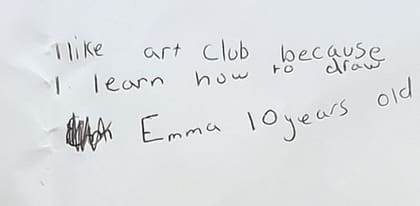 I like art club because
I learn how to draw
Emma 10 years old